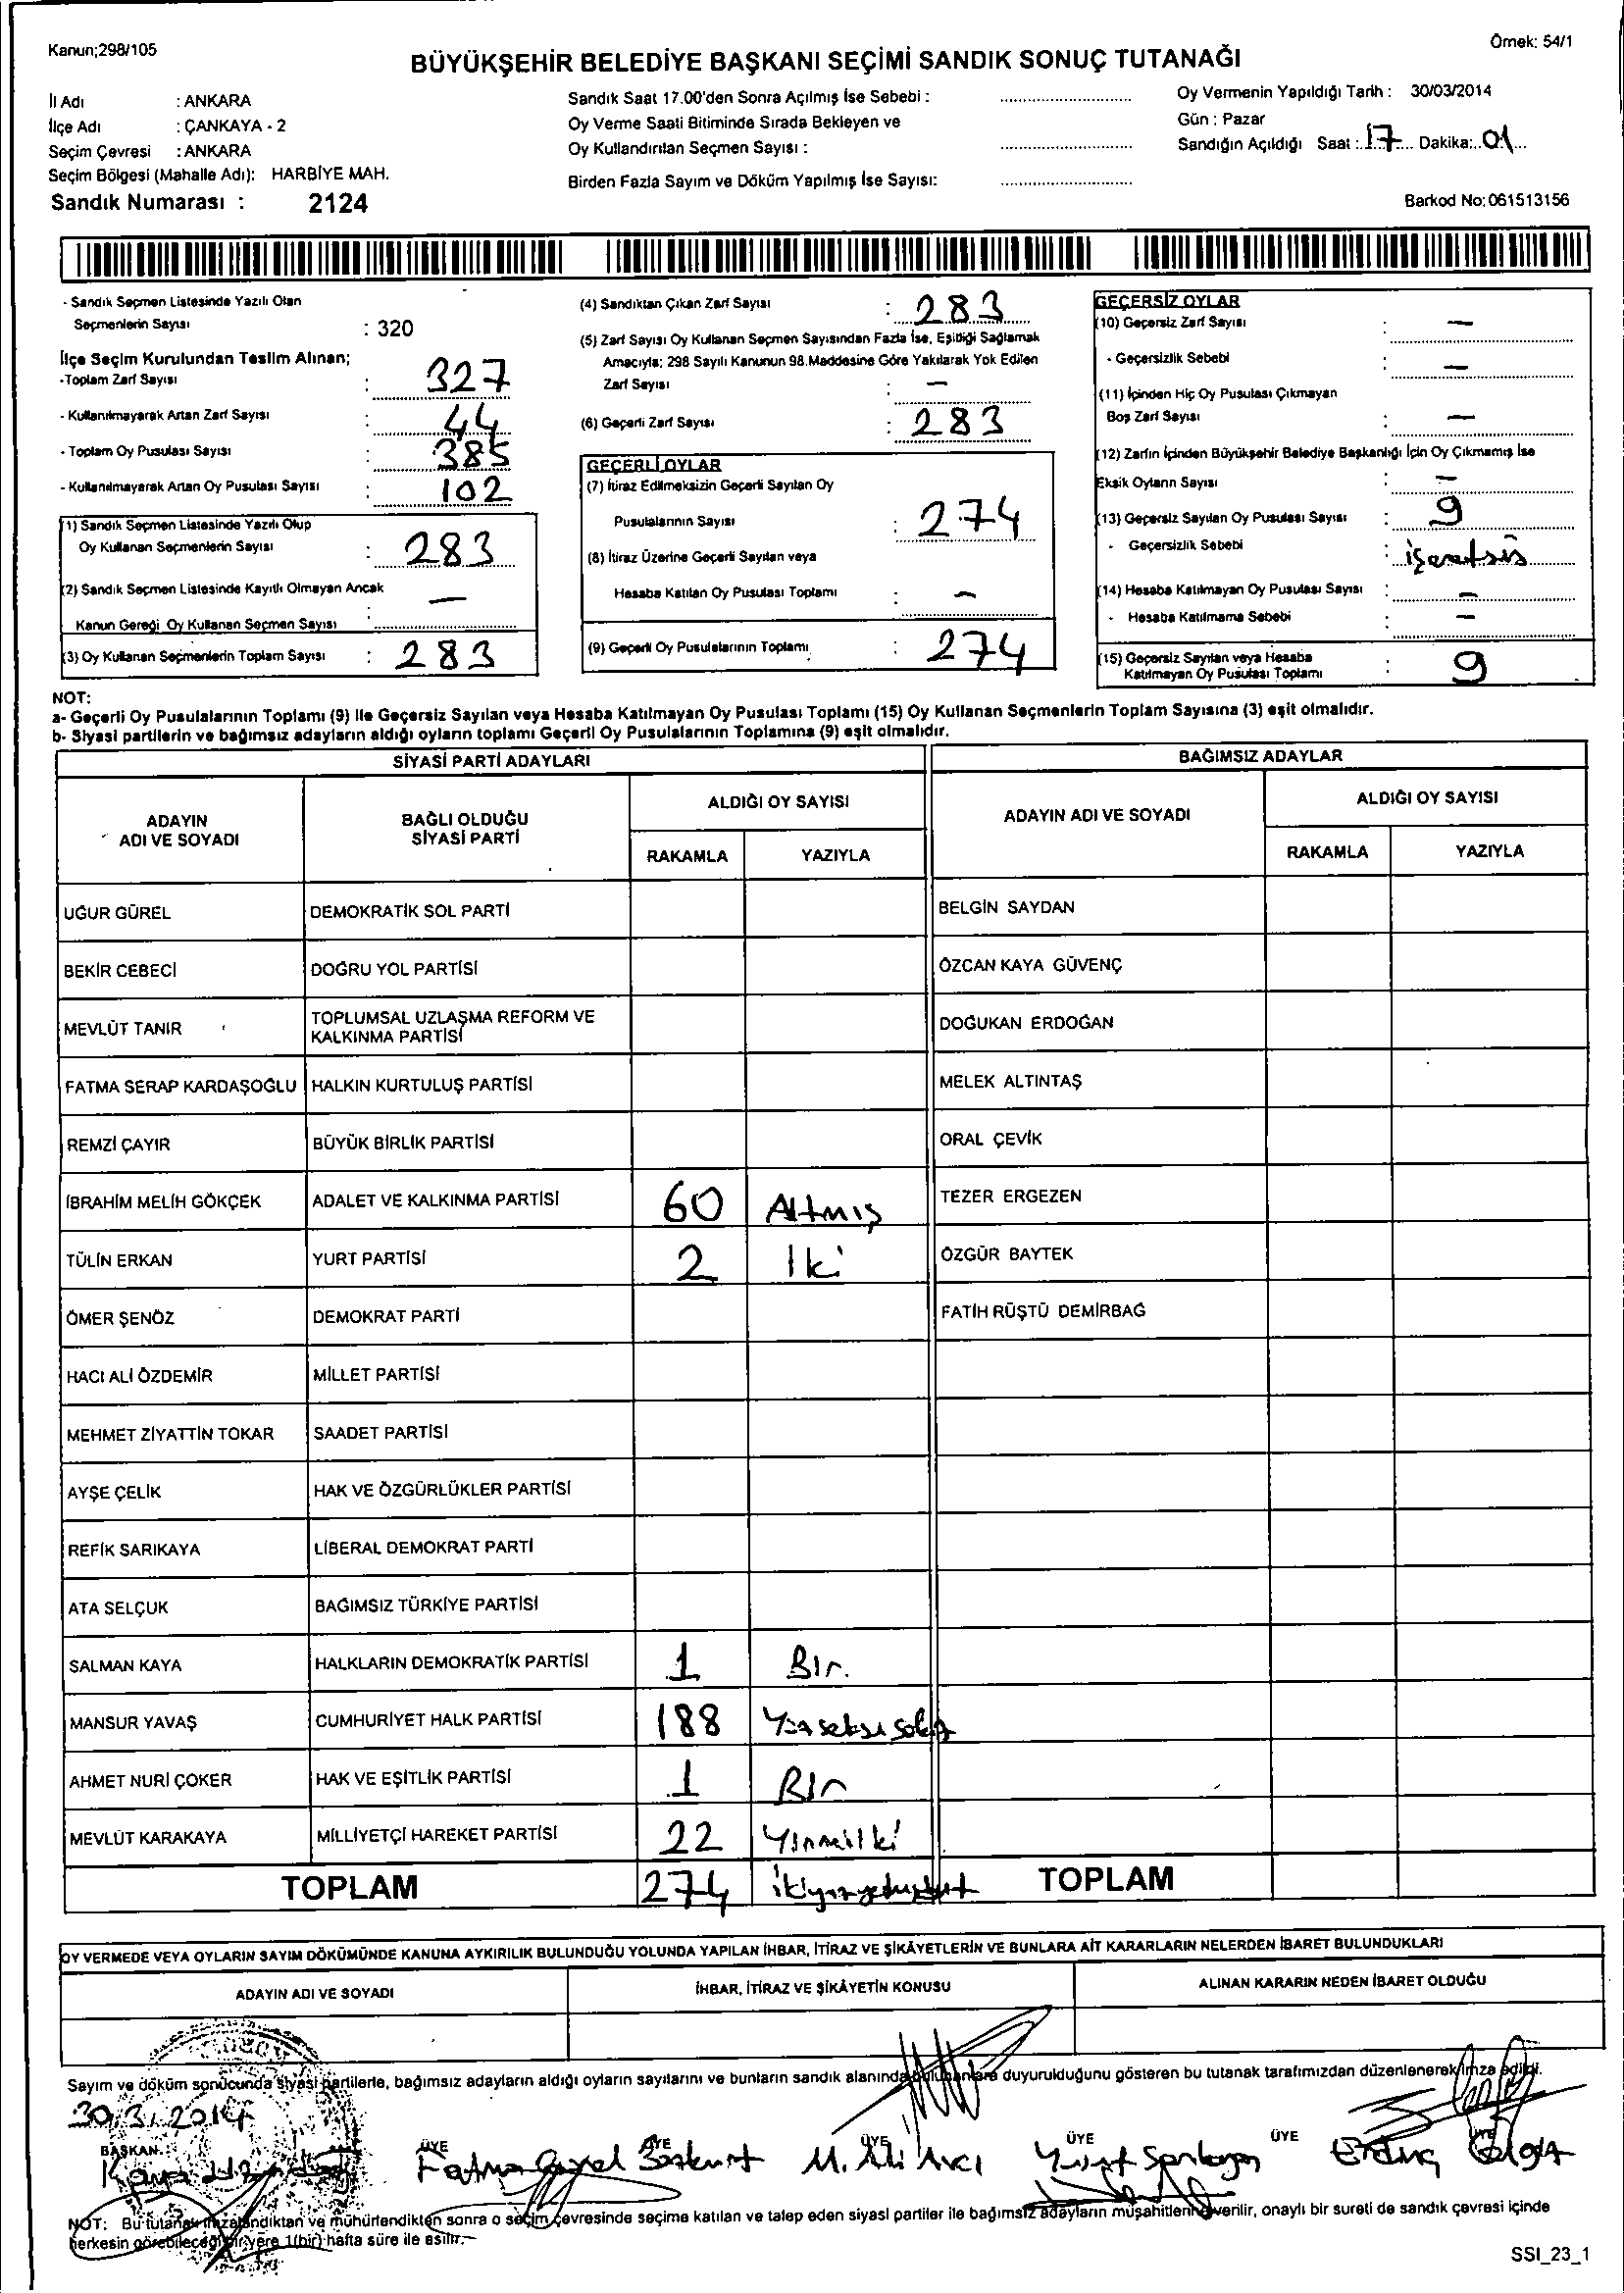 Kanun;298/105
Örnek: 54/1
BÜYÜKŞEHİR BELEDİYE BAŞKANI SEÇİMİ SANDIK SONUÇ TUTANAĞI
İl Adı : ANKARA
İlçe Adı : ÇANKAYA - 2
Seçim Çevresi : ANKARA
Seçim Bölgesi (Mahalle Adı): HARBİYE MAH.
Sandık Numarası : 2124
Sandık Saat 17.00'den Sonra Açılmış İse Sebebi :
Oy Verme Saati Bitiminde Sırada Bekleyen ve
Oy Kullandırılan Seçmen Sayısı :
Birden Fazla Sayım ve Döküm Yapılmış İse Sayısı:
Oy Vermenin Yapıldığı Tarih : 30/03/2014
Gün : Pazar
Sandığın Açıldığı Saat : 17 Dakika: 01
Barkod No: 061513156
- Sandık Seçmen Listesinde Yazılı Olan
Seçmenlerin Sayısı : 320
İlçe Seçim Kurulundan Teslim Alınan;
-Toplam Zarf Sayısı : 327
- Kullanılmayarak Artan Zarf Sayısı : 44
- Toplam Oy Pusulası Sayısı : 385
- Kullanılmayarak Artan Oy Pusulası Sayısı : 102
(1) Sandık Seçmen Listesinde Yazılı Olup
Oy Kullanan Seçmenlerin Sayısı : 283
(2) Sandık Seçmen Listesinde Kayıtlı Olmayan Ancak
Kanun Gereği Oy Kullanan Seçmen Sayısı : —
(3) Oy Kullanan Seçmenlerin Toplam Sayısı : 283
(4) Sandıktan Çıkan Zarf Sayısı : 283
(5) Zarf Sayısı Oy Kullanan Seçmen Sayısından Fazla İse, Eşitliği Sağlamak
Amacıyla; 298 Sayılı Kanunun 98.Maddesine Göre Yakılarak Yok Edilen
Zarf Sayısı : —
(6) Geçerli Zarf Sayısı : 283
GEÇERLİ OYLAR
(7) İtiraz Edilmeksizin Geçerli Sayılan Oy
Pusulalarının Sayısı : 274
(8) İtiraz Üzerine Geçerli Sayılan veya
Hesaba Katılan Oy Pusulası Toplamı : —
(9) Geçerli Oy Pusulalarının Toplamı : 274
GEÇERSİZ OYLAR
(10) Geçersiz Zarf Sayısı : —
- Geçersizlik Sebebi : —
(11) İçinden Hiç Oy Pusulası Çıkmayan
Boş Zarf Sayısı : —
(12) Zarfın İçinden Büyükşehir Belediye Başkanlığı İçin Oy Çıkmamış İse
Eksik Oyların Sayısı : —
(13) Geçersiz Sayılan Oy Pusulası Sayısı : 9
- Geçersizlik Sebebi : işaretsis
(14) Hesaba Katılmayan Oy Pusulası Sayısı : —
- Hesaba Katılmama Sebebi : —
(15) Geçersiz Sayılan veya Hesaba
Katılmayan Oy Pusulası Toplamı : 9
NOT:
a- Geçerli Oy Pusulalarının Toplamı (9) ile Geçersiz Sayılan veya Hesaba Katılmayan Oy Pusulası Toplamı (15) Oy Kullanan Seçmenlerin Toplam Sayısına (3) eşit olmalıdır.
b- Siyasi partilerin ve bağımsız adayların aldığı oyların toplamı Geçerli Oy Pusulalarının Toplamına (9) eşit olmalıdır.
SİYASİ PARTİ ADAYLARI
BAĞIMSIZ ADAYLAR
ADAYIN
ADI VE SOYADI
BAĞLI OLDUĞU
SİYASİ PARTİ
ALDIĞI OY SAYISI
RAKAMLA YAZIYLA
ADAYIN ADI VE SOYADI
ALDIĞI OY SAYISI
RAKAMLA YAZIYLA
UĞUR GÜREL DEMOKRATİK SOL PARTİ BELGİN SAYDAN
BEKİR CEBECİ DOĞRU YOL PARTİSİ ÖZCAN KAYA GÜVENÇ
MEVLÜT TANIR TOPLUMSAL UZLAŞMA REFORM VE
KALKINMA PARTİSİ DOĞUKAN ERDOĞAN
FATMA SERAP KARDAŞOĞLU HALKIN KURTULUŞ PARTİSİ MELEK ALTINTAŞ
REMZİ ÇAYIR BÜYÜK BİRLİK PARTİSİ ORAL ÇEVİK
İBRAHİM MELİH GÖKÇEK ADALET VE KALKINMA PARTİSİ 60 Altmış TEZER ERGEZEN
TÜLİN ERKAN YURT PARTİSİ 2 İki ÖZGÜR BAYTEK
ÖMER ŞENÖZ DEMOKRAT PARTİ FATİH RÜŞTÜ DEMİRBAĞ
HACI ALİ ÖZDEMİR MİLLET PARTİSİ
MEHMET ZİYATTİN TOKAR SAADET PARTİSİ
AYŞE ÇELİK HAK VE ÖZGÜRLÜKLER PARTİSİ
REFİK SARIKAYA LİBERAL DEMOKRAT PARTİ
ATA SELÇUK BAĞIMSIZ TÜRKİYE PARTİSİ
SALMAN KAYA HALKLARIN DEMOKRATİK PARTİSİ 1 Bir.
MANSUR YAVAŞ CUMHURİYET HALK PARTİSİ 188
AHMET NURİ ÇOKER HAK VE EŞİTLİK PARTİSİ 1 Bir
MEVLÜT KARAKAYA MİLLİYETÇİ HAREKET PARTİSİ 22 Yirmiiki
TOPLAM 274 TOPLAM
OY VERMEDE VEYA OYLARIN SAYIM DÖKÜMÜNDE KANUNA AYKIRILIK BULUNDUĞU YOLUNDA YAPILAN İHBAR, İTİRAZ VE ŞİKÂYETLERİN VE BUNLARA AİT KARARLARIN NELERDEN İBARET BULUNDUKLARI
ADAYIN ADI VE SOYADI
İHBAR, İTİRAZ VE ŞİKÂYETİN KONUSU
ALINAN KARARIN NEDEN İBARET OLDUĞU
Sayım ve döküm sonucunda siyasi partilerle, bağımsız adayların aldığı oyların sayılarını ve bunların sandık alanında bulunanlara duyurulduğunu gösteren bu tutanak tarafımızdan düzenlenerek imza edildi.
30.3.2014
BAŞKAN ÜYE ÜYE ÜYE ÜYE ÜYE
Fatma M. Ali Avcı
NOT: Bu tutanak imzalandıktan ve mühürlendikten sonra o seçim çevresinde seçime katılan ve talep eden siyasi partiler ile bağımsız adayların müşahitlerine verilir, onaylı bir sureti de sandık çevresi içinde
herkesin görebileceği bir yere 1(bir) hafta süre ile asılır.
SSI_23_1